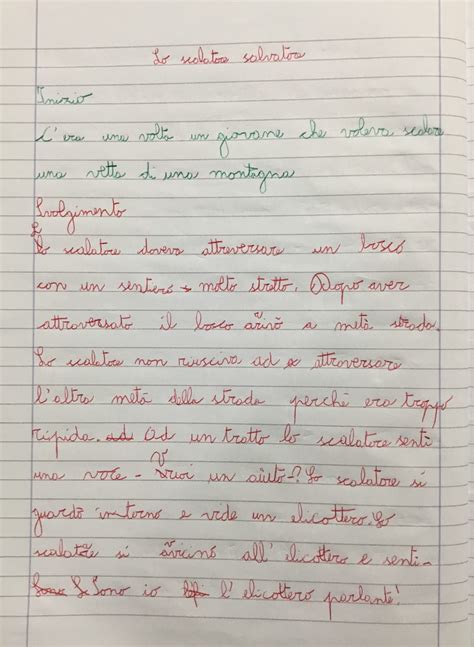 Lo scalatore salvatore
Inizio
C'era una volta un giovane che voleva scalare
una vetta di una montagna
Svolgimento
Lo scalatore doveva attreversare un bosco
con un sentiero molto stretto. Dopo aver
attroversato il bosco arrivò a metà strada.
Lo scalatore non riusciva ad attroversare
l'altra metà della strada perché era troppo
ripida. Ad un tratto lo scalatore sentì
una voce - Vuoi un aiuto-? Lo scalatore si
guardò in torno e vide un elicottero. Lo
scalatore si avvicinò all' elicottero e senti-
Sono io l'elicottero parlante!